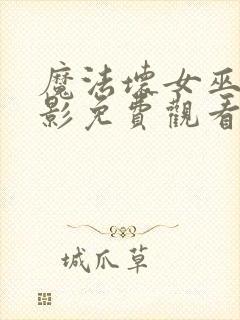 魔法壞女巫
影免費觀看
城爪草